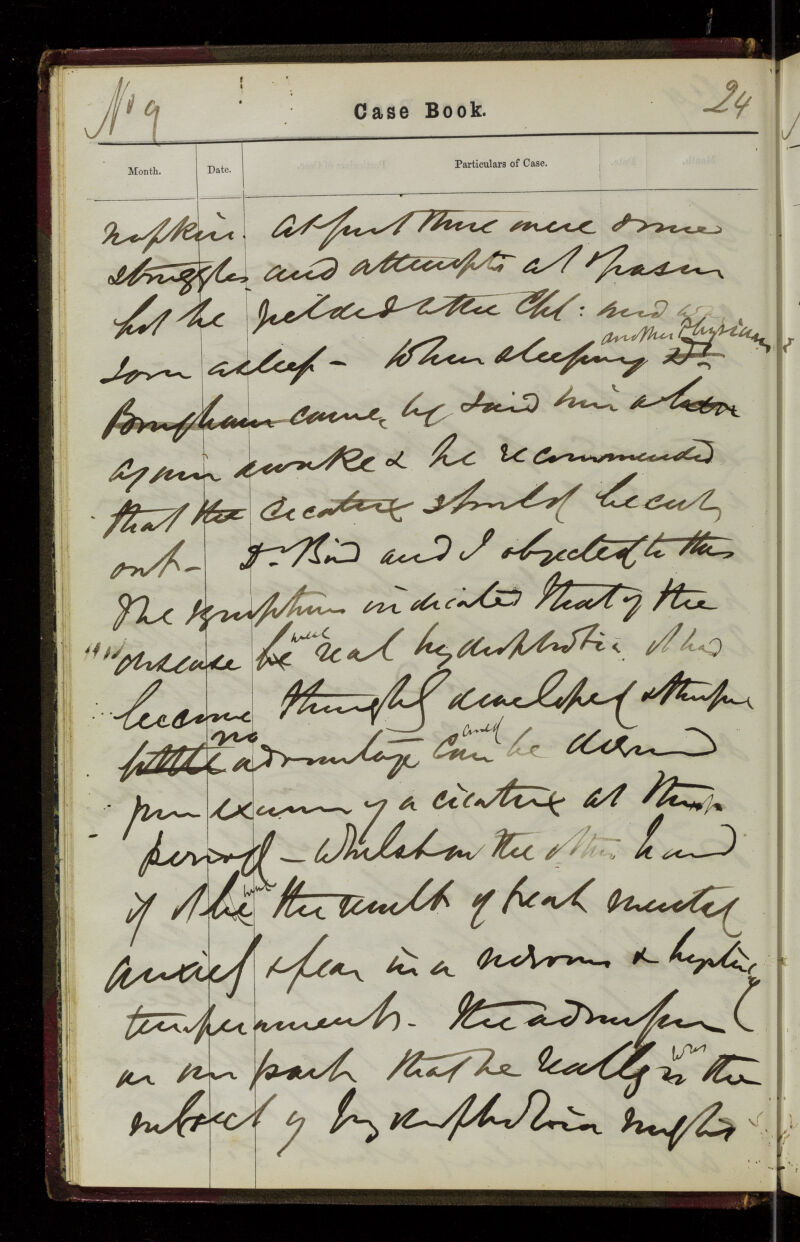 No 9
Case Book.
24
Month. Date. Particulars of Case.
napkin. At first there were some
struggles and attempts at spasm
but he yielded to the Chl: and was
another Physician
soon asleep - When sleeping Dr
Bougham came, he said him when
again awake & he recommended
that the cicatrix should be cut
out - Dr. Bird and I objected to this
The symptoms indicated that if the
disease be were real hydrophobia it had
become thoroughly developed & therefore
little no advantage can could be derived
from excision of a cicatrix at that
period - Whilst on the other hand
if it be were the result of great mental
anxiety & fear in a nervous & hysterical
temperament - The admission
on our part that he really is was the
subject of hydrophobia might